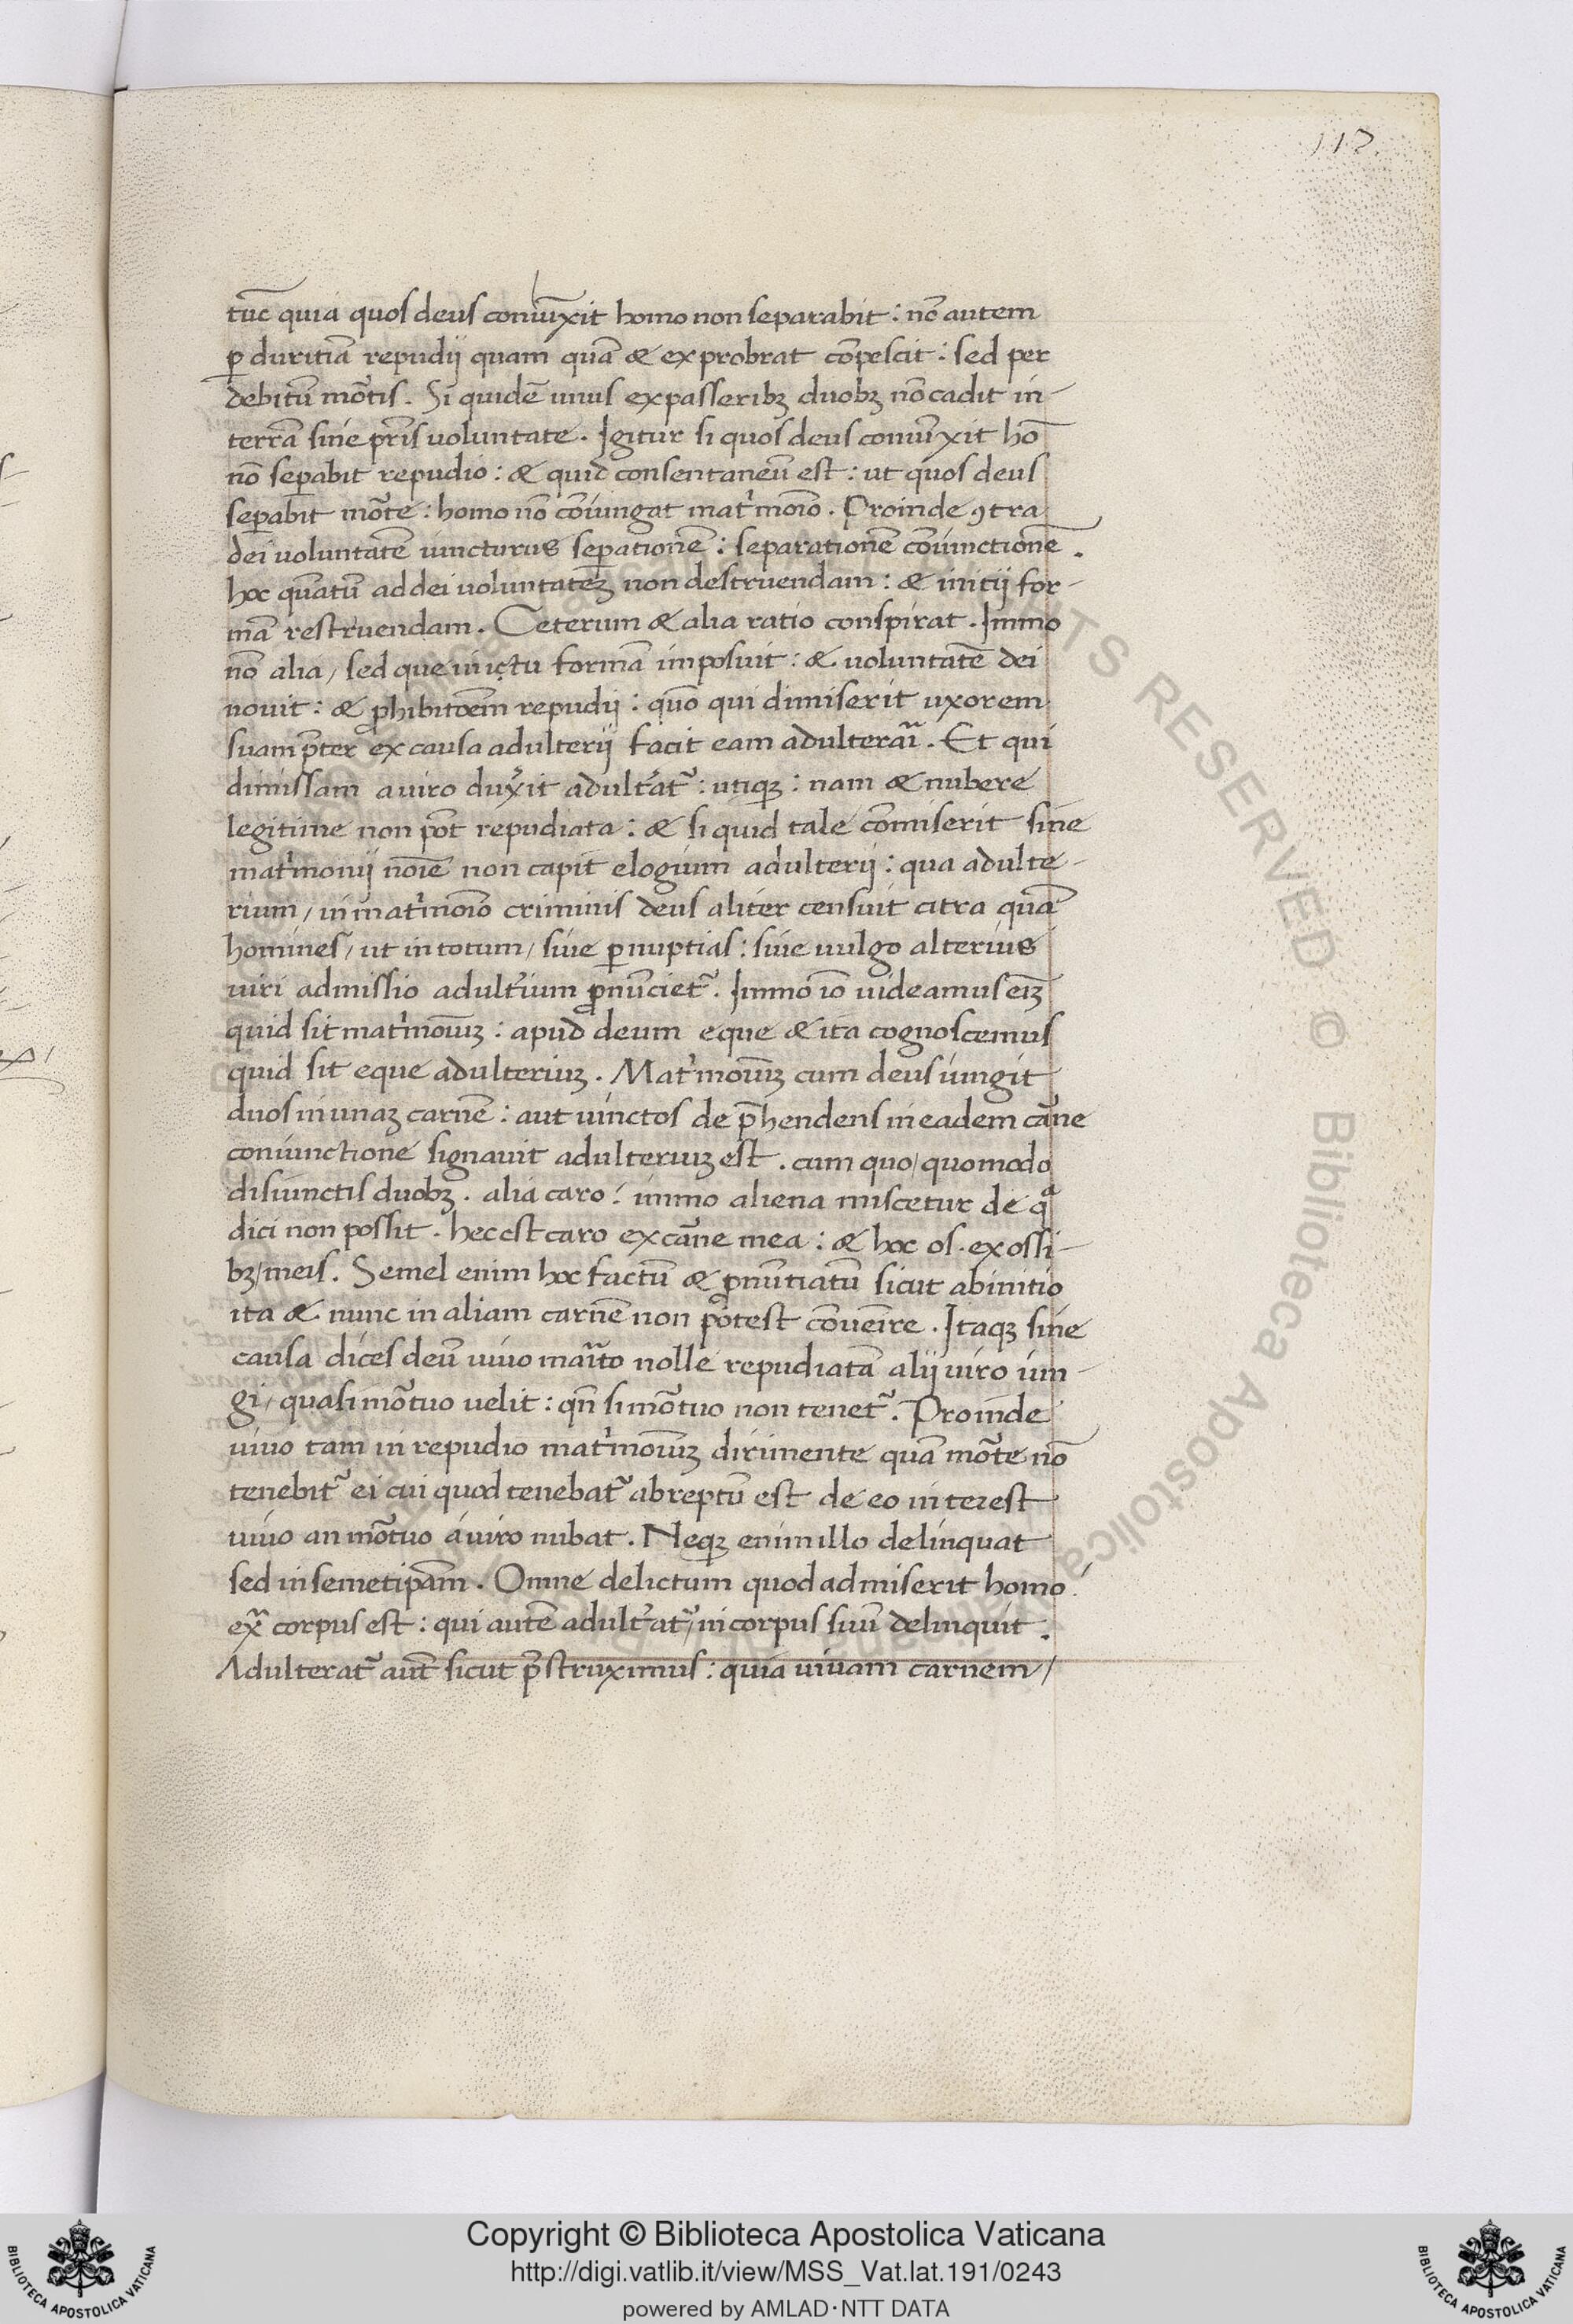 112.
tūc quia quos deus coniūxit homo non separabit : nō autem
ꝑ duritiā repudij quam quā & exprobrat cōpescit : sed per
debitū mōtis . Si quidē unus ex passeribꝫ duobꝫ nō cadit in-
terrā sine pr̄is voluntate . Igitur si quos deus coniūxit hō
nō seꝑabit repudio : & quid consentaneū est : ut quos deus
seꝑabit mōte : homo nō cōiungat mat'moīo . Proinde ꝯtra
dei voluntatē iuncturus seꝑationē : separationē cōiunctionē .
hoc quātū ad dei voluntatēꝫ non destruendam : & initij for-
mā restruendam . Ceterum & alia ratio conspirat . Immo
nō alia / sed que inictu formā imposuit : & voluntatē dei
novit : & ꝓhibitōem repudij : quō qui dimiserit uxorem
suam p̄ter ex causa adulterij facit eam adulterari . Et qui
dimissam a viro dux'it adult'at' : utiqꝫ : nam & nubere
legitime non pōt repudiata : & si quid tale cōmiserit sine
mat'monij noīe non capit elogium adulterij : qua adulte-
rium / in mat'moīo criminis deus aliter censuit citra quā
homines / ut in totum / sive ꝑ nuptias : sive vulgo alterius
viri admissio adult'ium ꝓnūciet' . Immo iō videamus eīꝫ
quid sit mat'moīuꝫ : apud deum eque & ita cognoscemus
quid sit eque adulteriuꝫ . Mat'moīuꝫ cum deus iungit
duos in unaꝫ carnē : aut iunctos de p̄hendens in eadem cāne
coniunctione signavit adulteriuꝫ est . cum quo / quomodo
disiunctis duobꝫ . alia caro / immo aliena miscetur de qᵃ
dici non possit . hec est caro ex cāne mea : & hoc os . ex ossi-
bꝫ / meis . Semel enim hoc factū & ꝓnūtiatū sicut ab initio
ita & nunc in aliam carnē non pōtest cōvenīre . Itaqꝫ sine
causa dices deū vivo marito nolle repudiatā alij viro iun-
gi / quasi mōtuo velit : qn̄ si mōtuo non tenet' . Proinde
vivo tam in repudio mat'moīuꝫ dirimente quā mōte nō
tenebit' ei cui quod tenebat' abreptū est de eo interest
vivo an mōtuo a viro nubat . Neqꝫ enim illo delinquat
sed in semetip̄am . Omne delictum quod admiserit homo /
exᵃ corpus est : qui autē adult'at' / in corpus suū delinquit .
Adulterat' aut̄ sicut p̄struximus : quia vivam carnem /
Copyright © Biblioteca Apostolica Vaticana
http://digi.vatlib.it/view/MSS_Vat.lat.191/0243
powered by AMLAD·NTT DATA